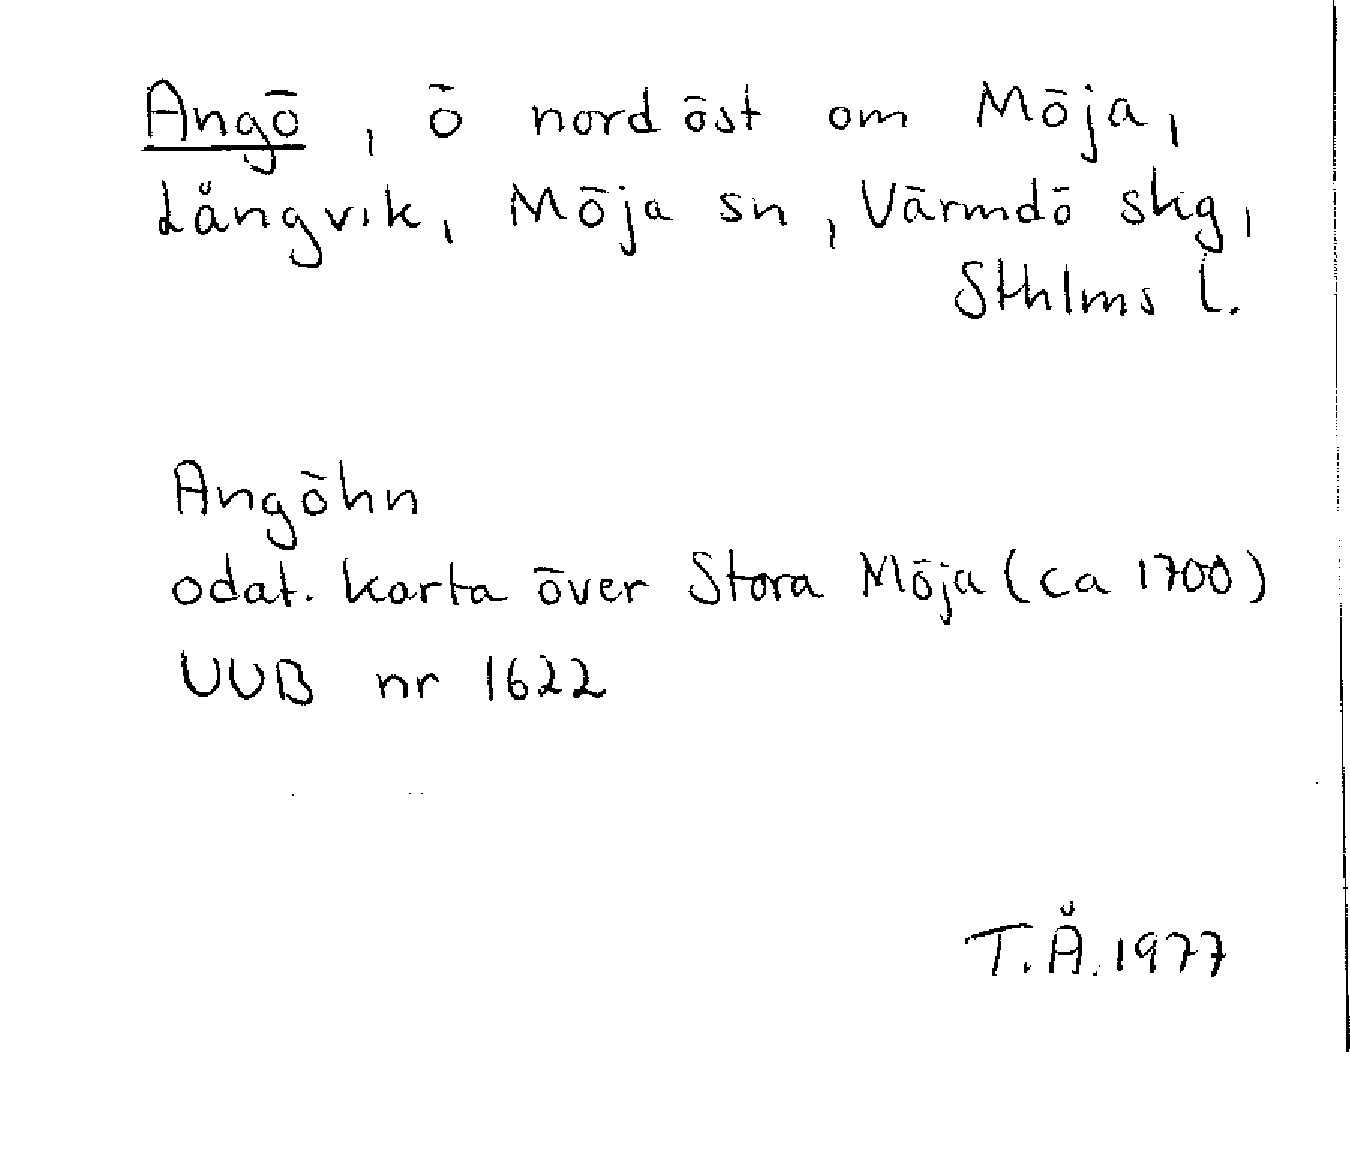 Angö, ö nordöst om Möja,
Långvik, Möja sn, Värmdö skg,
Sthlms l.
Angöhn
odat. karta över Stora Möja (ca 1700)
UUB nr 1622
T.Å. 1977